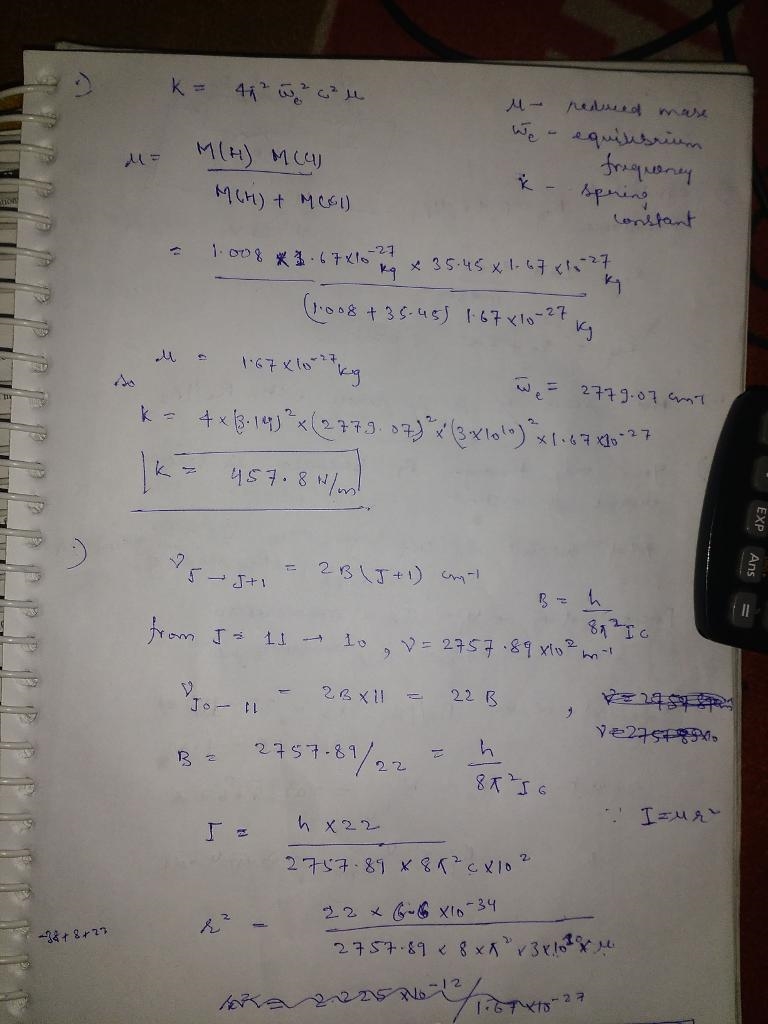 .) K = 4π² ω̄e² c² μ
μ → reduced mass
ω̄e - equilibrium
frequency
k - spring
constant
μ = M(H) M(Cl)
M(H) + M(Cl)
= 1.008 × 1.67×10⁻²⁷ kg × 35.45 × 1.67 × 10⁻²⁷ kg
(1.008 + 35.45) 1.67 × 10⁻²⁷ kg
μ = 1.67 × 10⁻²⁷ kg
so
ω̄e = 2779.07 cm⁻¹
k = 4 × (3.14)² × (2779.07)² × (3×10¹⁰)² × 1.67 × 10⁻²⁷
K = 457.8 N/m
.) ν J → J+1 = 2B(J+1) cm⁻¹
B = h
8π² I c
from J = 11 → 10, ν = 2757.89 × 10² m⁻¹
ν 10 - 11 = 2B × 11 = 22 B ,
B = 2757.89/22 = h
8π² I c
I = h × 22
2757.89 × 8π² c × 10²
∵ I = μr²
r² = 22 × 6.6 × 10⁻³⁴
2757.89 × 8 × π² × 3×10¹⁰ × μ
-38+8+27
EXP
Ans
=